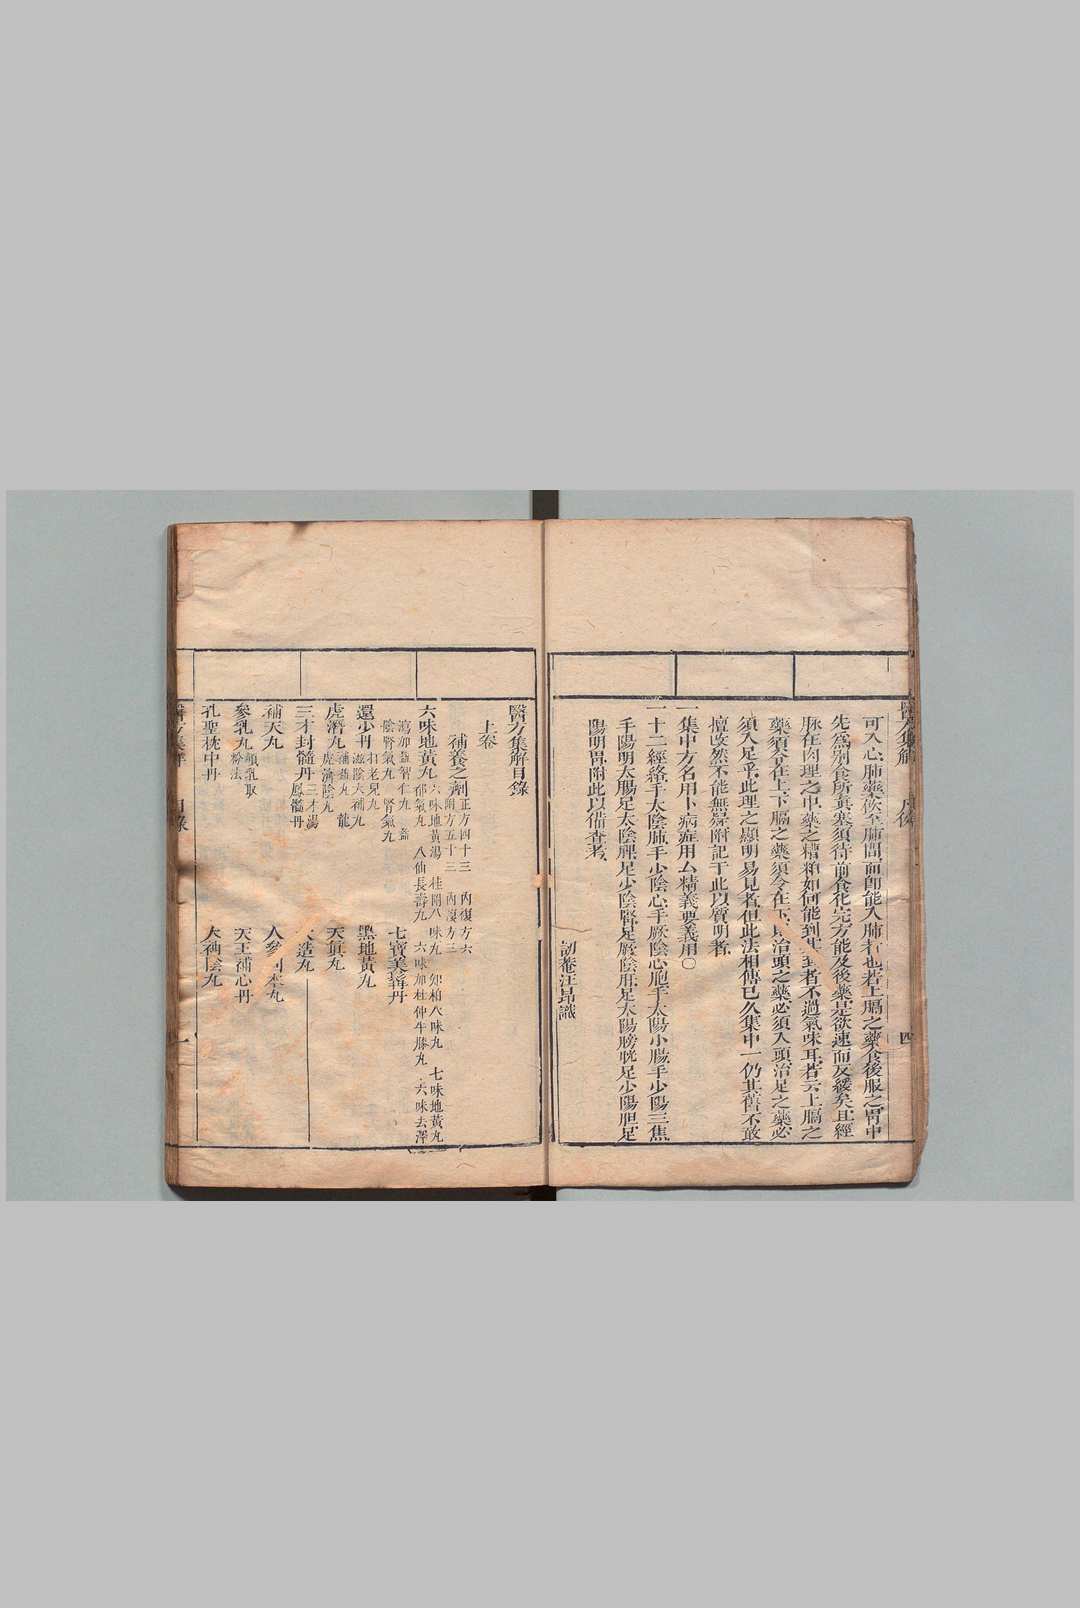 可入心肺藥飲至肺間而即能入肺者也若上膈之藥食後服之胃中
先爲別食所眞塞須待前食化完方能及後藥是欲速而反緩矣且經
脉在肉理之中藥之糟粕如何能到其到者不過氣味耳若云上膈之
藥須令在上下膈之藥須令在下則治頭之藥必須入頭治足之藥必
須入足乎此理之顯明易見者但此法相傳已久集中一仍其舊不敢
擅改然不能無疑附記于此以質明者
一集中方名用卜病症用厶精義要義用〇
一十二經絡手太陰肺手少陰心手厥陰心胞手太陽小腸手少陽三焦
手陽明大腸足太陰脾足少陰腎足厥陰肝足太陽膀胱足少陽膽足
陽明胃附此以備查考
訒菴汪昂識
醫方集解目錄
上卷
補養之劑正方四十三 內復方六
附方五十三 內復方三
六味地黃丸六味地黃湯 桂附八味丸 知柏八味丸 七味地黃丸
都氣丸 八仙長壽丸 六味加杜仲牛膝丸 六味去澤
瀉加益智仁丸 益
陰腎氣丸 腎氣丸
七寶美髯丹
還少丹打老兒丸
滋陰大補丸
黑地黃丸
虎潛丸補益丸 龍
虎濟陰丸
天眞丸
三才封髓丹三才湯
鳳髓丹
大造丸
補天丸
人參固本丸
參乳丸頓乳取
粉法
天王補心丹
孔聖枕中丹
大補陰丸
醫方集解 目錄 一